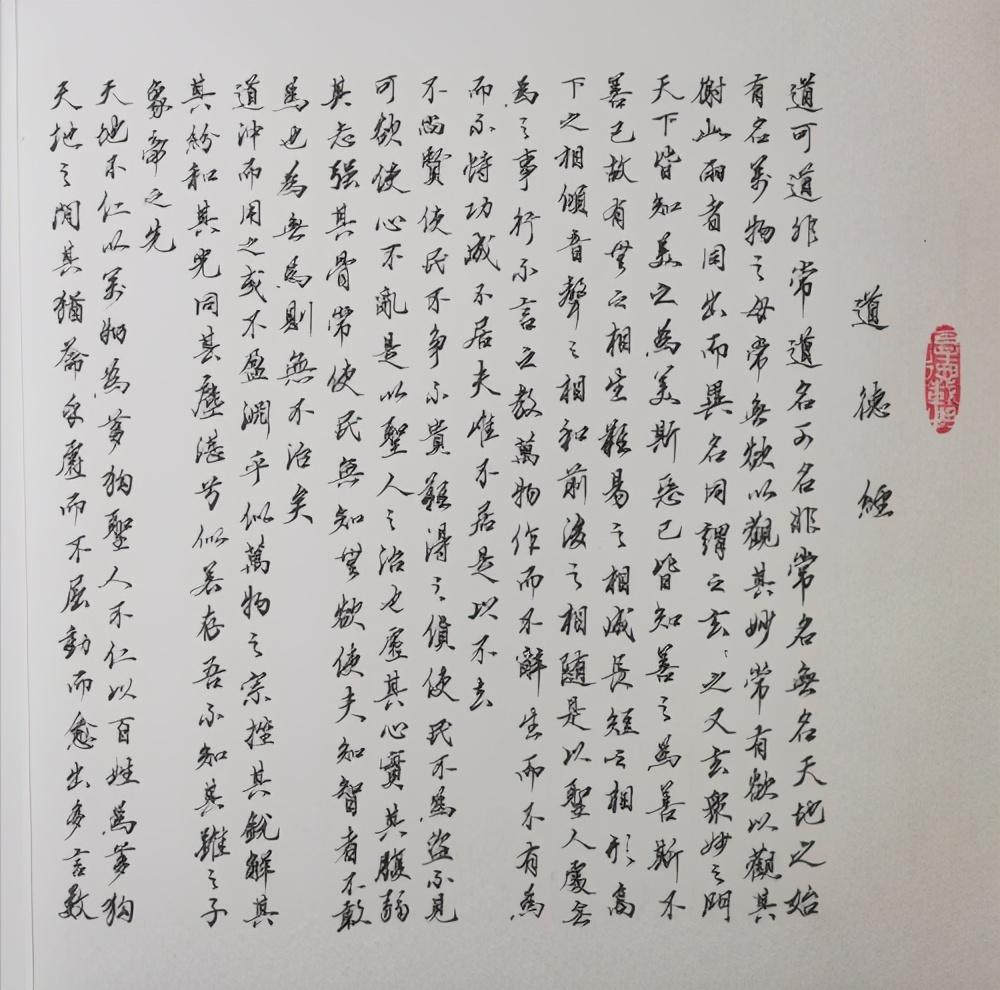 道德經
道可道非常道名可名非常名無名天地之始
有名萬物之母常无欲以觀其妙常有欲以觀其
徼此兩者同出而異名同謂之玄〻之又玄衆妙之門
天下皆知美之為美斯惡已皆知善之為善斯不
善已故有無之相生難易之相成長短之相形高
下之相傾音聲之相和前後之相隨是以聖人處无
為之事行不言之教萬物作而不辭生而不有為
而不恃功成不居夫唯不居是以不去
不尚賢使民不爭不貴難得之貨使民不為盜不見
可欲使心不亂是以聖人之治也虛其心實其腹弱
其志强其骨常使民無知無欲使夫知智者不敢
為也為無為則無不治矣
道沖而用之或不盈淵乎似萬物之宗挫其銳解其
其紛和其光同其塵湛兮似若存吾不知其誰之子
象帝之先
天地不仁以萬物為芻狗聖人不仁以百姓為芻狗
天地之間其猶橐乎籥而不屈動而愈出多言數